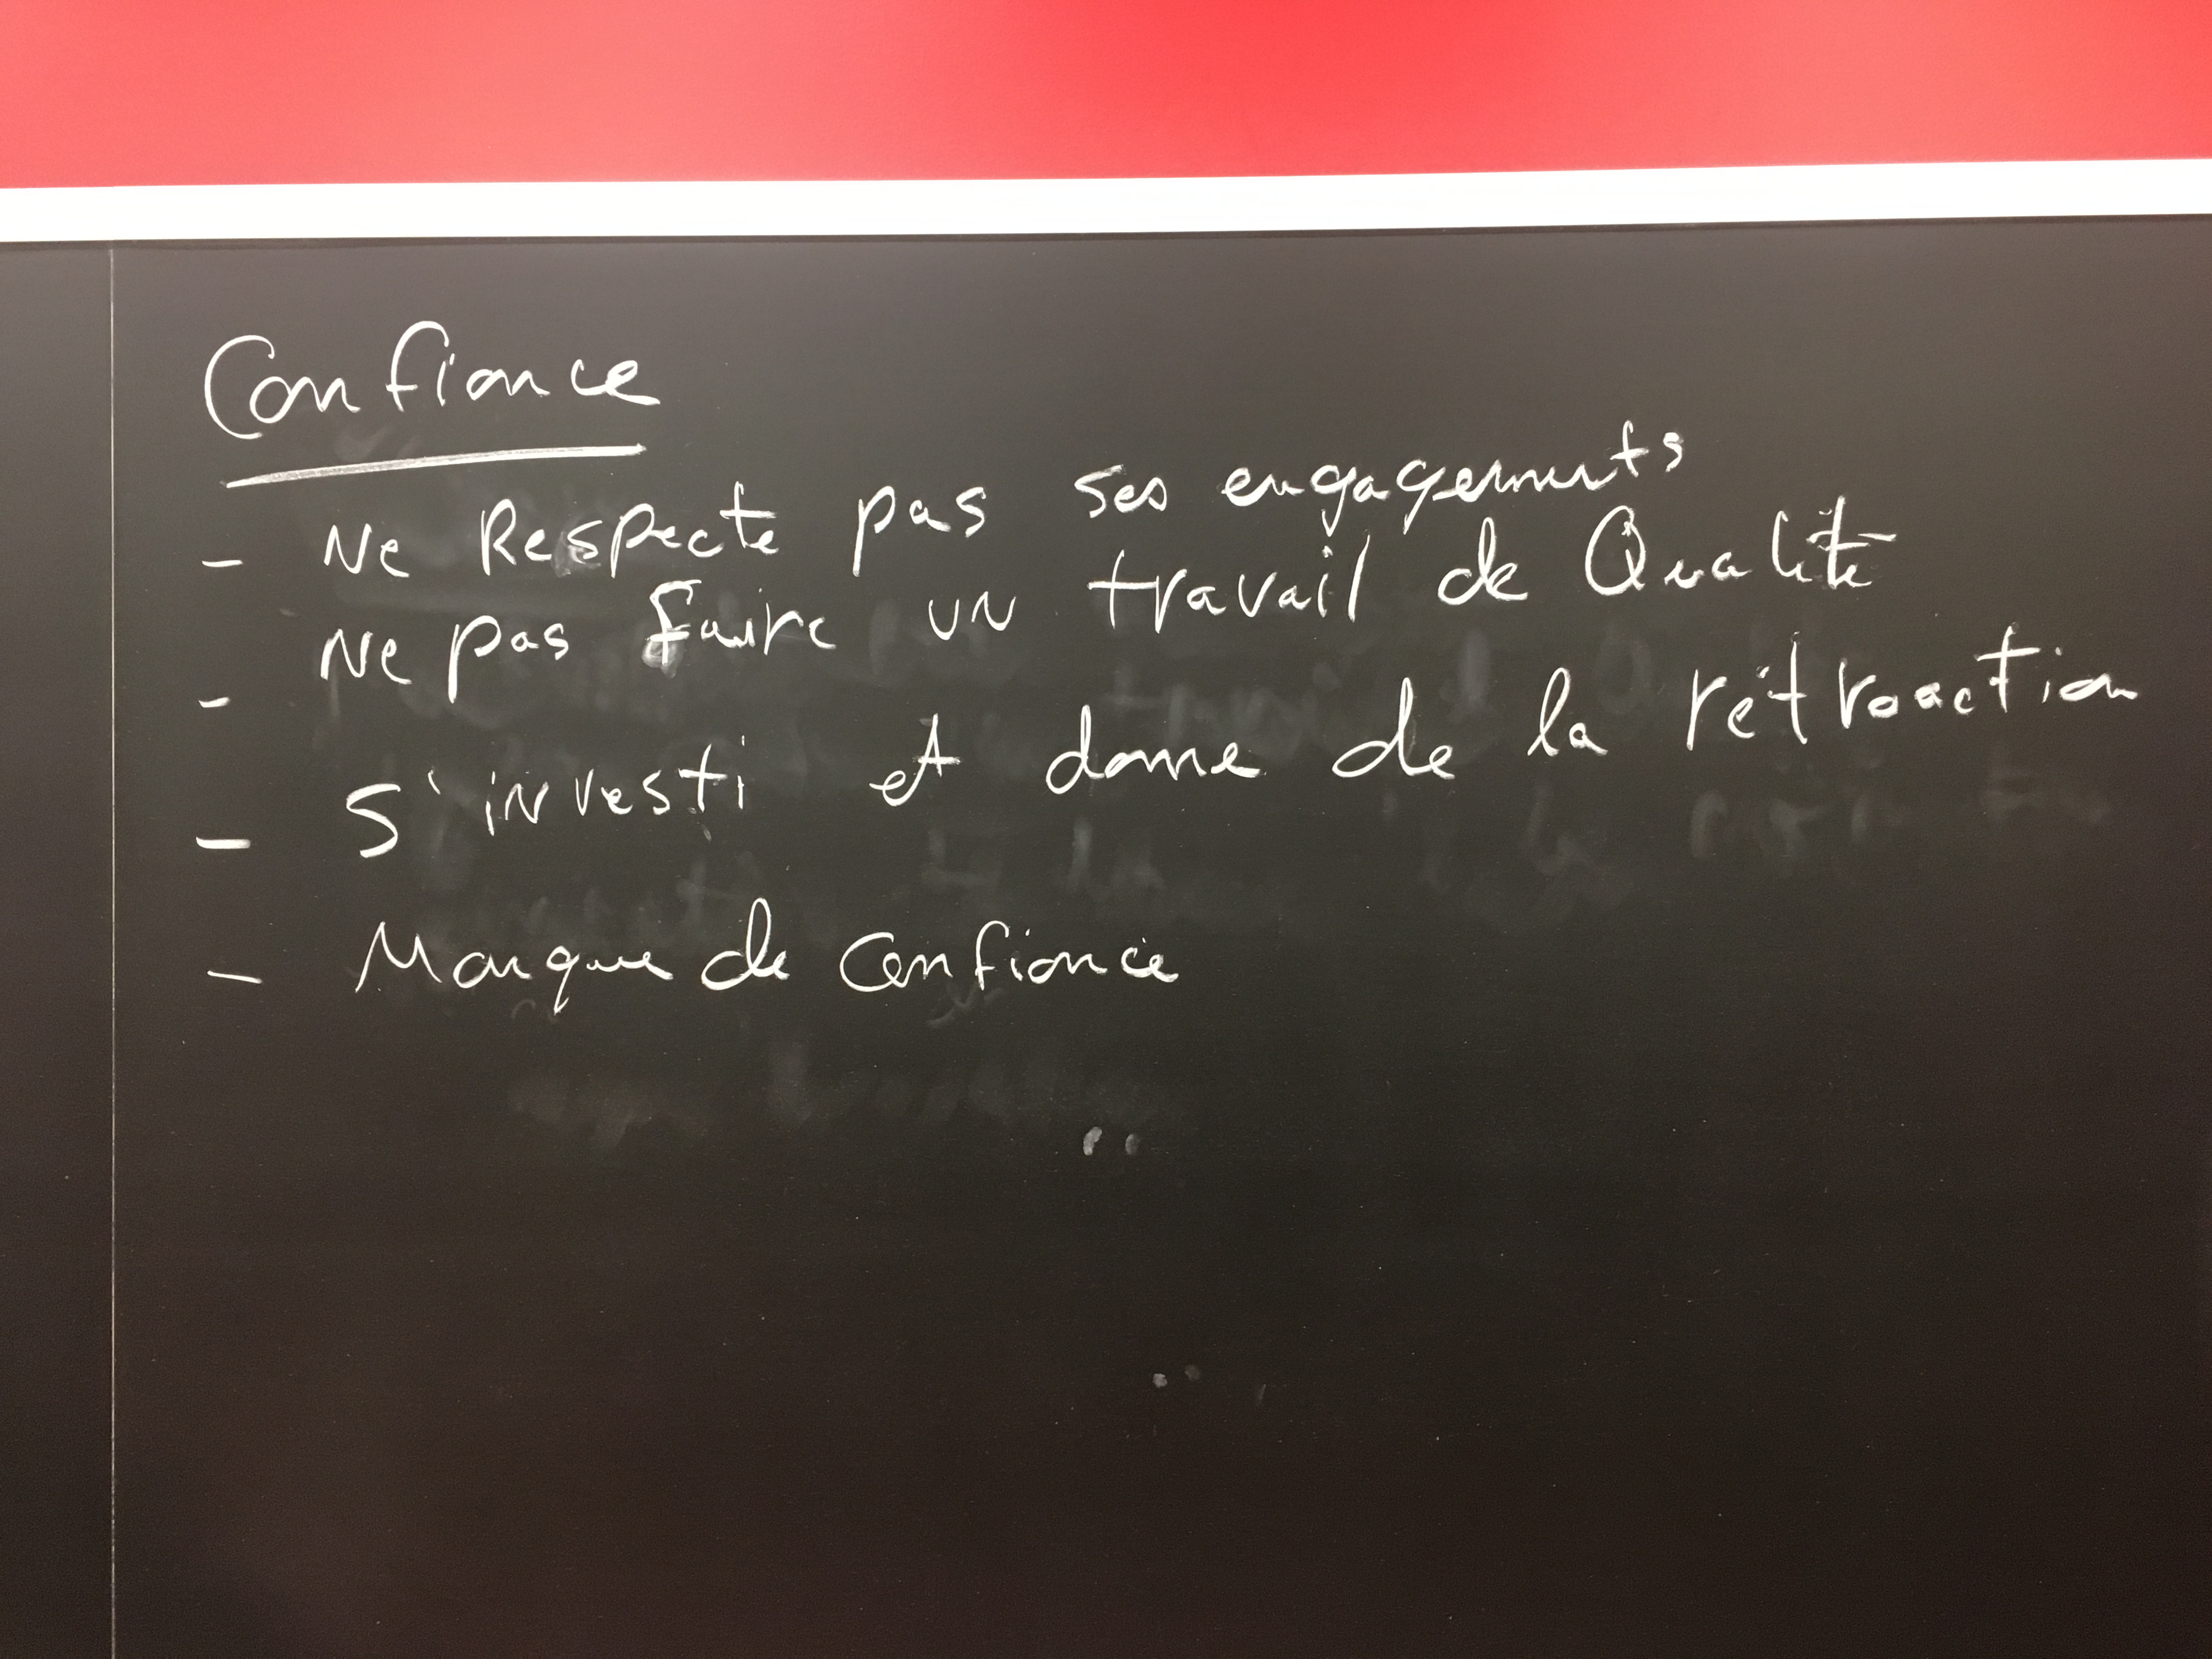 Confiance
- Ne Respecte pas ses engagements
- Ne pas faire un travail de Qualité
- S'investi et donne de la rétroaction
- Manque de Confiance